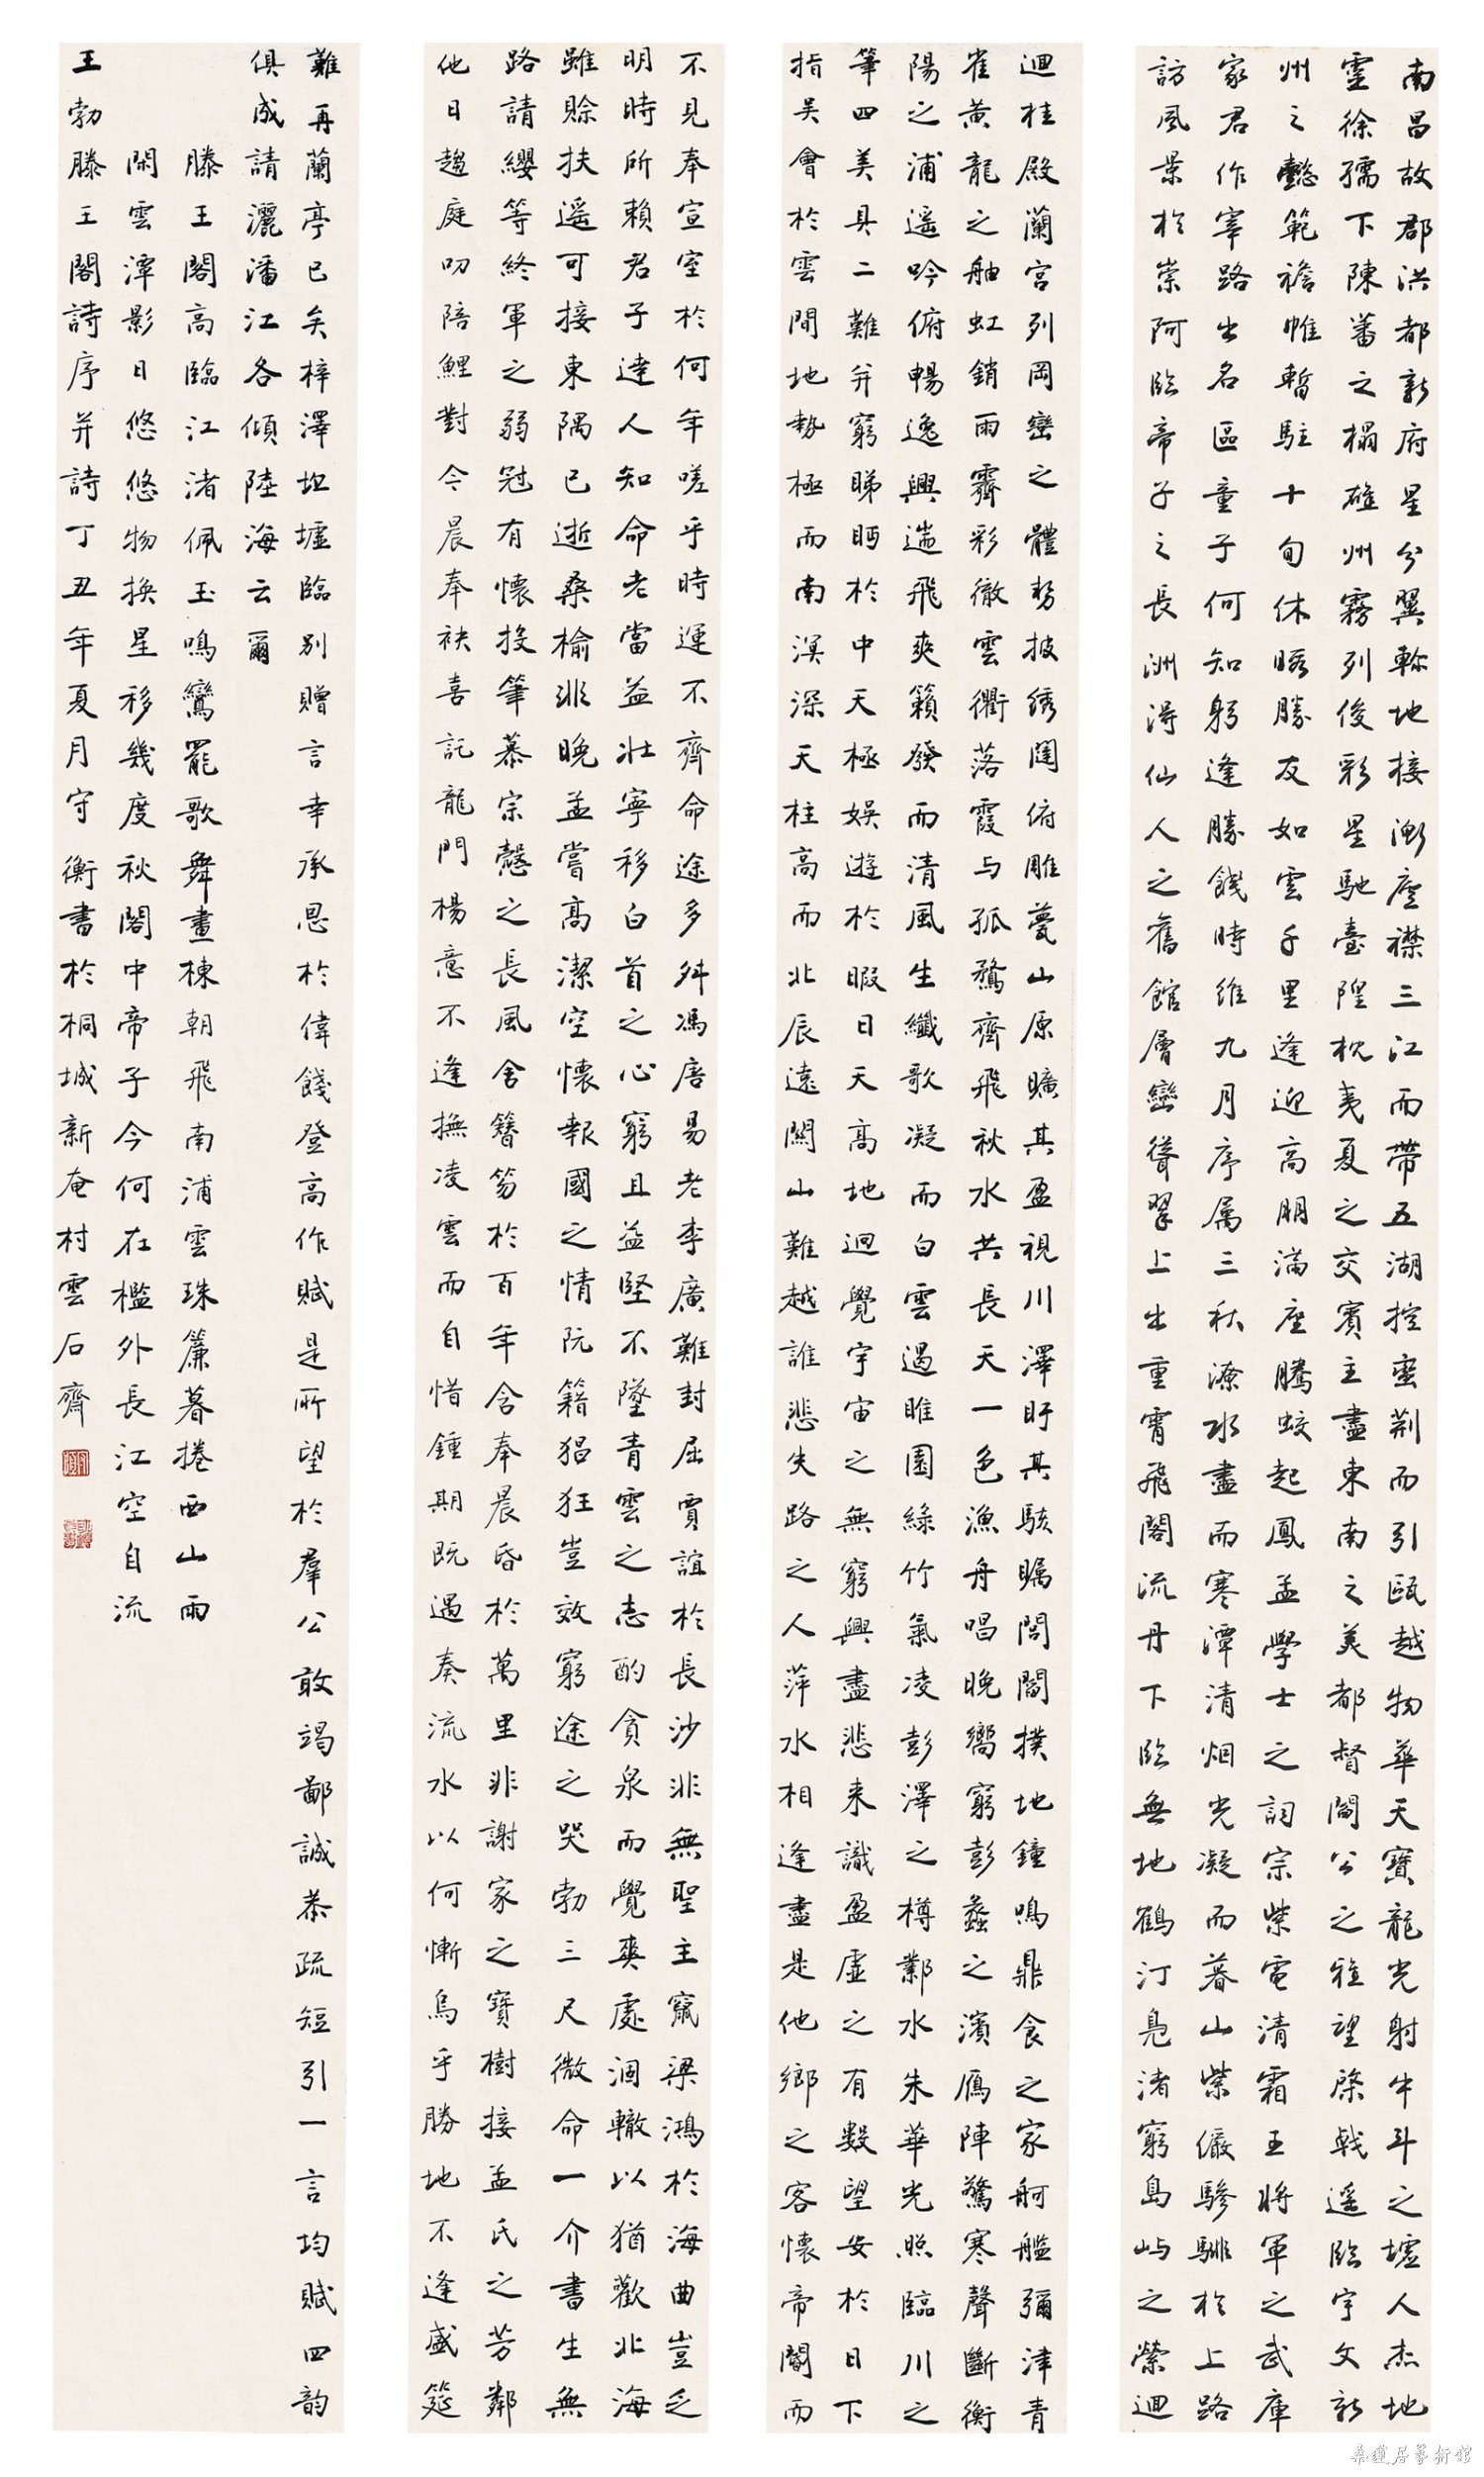 南昌故郡洪都新府星分翼軫地接衡廬襟三江而帶五湖控蛮荆而引甌越物華天寶龍光射牛斗之墟人杰地
靈徐孺下陳蕃之榻雄州霧列俊彩星馳臺隍枕夷夏之交賓主盡東南之美都督閻公之雅望棨戟遥臨宇文新
州之懿範襜帷暫駐十旬休暇勝友如雲千里逢迎高朋滿座騰蛟起鳳孟學士之詞宗紫電清霜王將軍之武庫
家君作宰路出名區童子何知躬逢勝餞時維九月序属三秋潦水盡而寒潭清烟光凝而暮山紫儼驂騑於上路
訪風景於崇阿臨帝子之長洲得仙人之舊館層巒聳翠上出重霄飛閣流丹下臨無地鶴汀凫渚窮島屿之縈迴
迴桂殿蘭宫列岡巒之體势披绣闥俯雕甍山原曠其盈視川澤盱其駭矚閭閻撲地鐘鳴鼎食之家舸艦彌津青
雀黄龍之舳虹銷雨霽彩徹雲衢落霞与孤鶩齊飛秋水共長天一色漁舟唱晚嚮窮彭蠡之濱雁陣驚寒聲斷衡
陽之浦遥吟俯暢逸興遄飛爽籟發而清風生纖歌凝而白雲遏睢園綠竹氣凌彭澤之樽鄴水朱華光照臨川之
筆四美具二難并窮睇眄於中天極娱遊於暇日天高地迥覺宇宙之無窮興盡悲来識盈虚之有数望安於日下
指吴會於雲間地勢極而南溟深天柱高而北辰遠關山難越誰悲失路之人萍水相逢盡是他鄉之客懷帝閽而
不見奉宣室於何年嗟乎時運不齊命途多舛馮唐易老李廣難封屈賈誼於長沙非無聖主竄梁鴻於海曲豈乏
明時所賴君子達人知命老當益壯寧移白首之心窮且益堅不墜青雲之志酌貪泉而覺爽處涸轍以猶歡北海
雖賒扶遥可接東隅已逝桑榆非晚孟嘗高潔空懷報國之情阮籍猖狂豈效窮途之哭勃三尺微命一介書生無
路請纓等終軍之弱冠有懷投筆慕宗慤之長風舍簪笏於百年含奉晨昏於萬里非謝家之寶樹接孟氏之芳鄰
他日趨庭叨陪鯉對今晨奉袂喜託龍門楊意不逢撫凌雲而自惜鍾期既遇奏流水以何慚烏乎勝地不逢盛筵
難再蘭亭已矣梓澤坵墟臨别贈言幸承恩於偉餞登高作賦是所望於羣公敢竭鄙誠恭疏短引一言均賦四韵
俱成請灑潘江各傾陸海云爾
滕王閣高臨江渚佩玉鳴鸞罷歌舞畫棟朝飛南浦雲珠簾暮捲西山雨
閑雲潭影日悠悠物换星移幾度秋閣中帝子今何在檻外長江空自流
王勃滕王閣詩序并詩丁丑年夏月守衡書於桐城新奄村雲石齋
桑蓮居藝術館